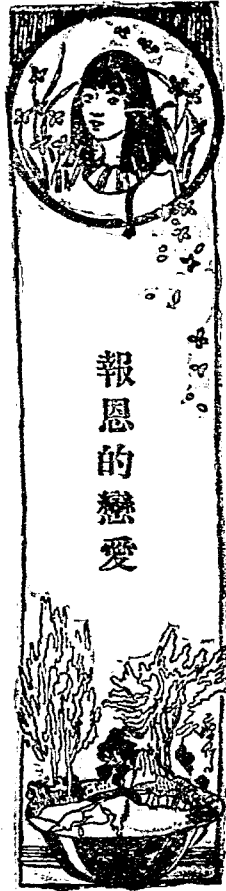 報恩的戀愛